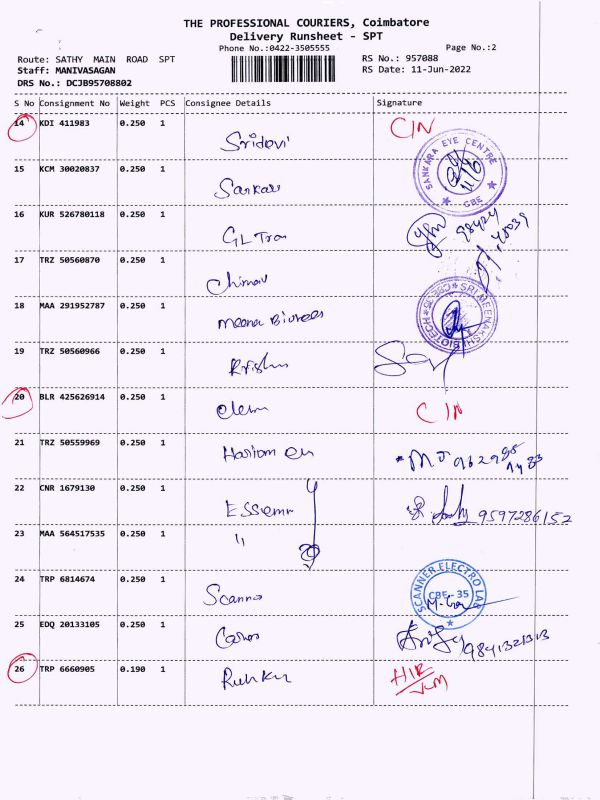 THE PROFESSIONAL COURIERS, Coimbatore
Delivery Runsheet - SPT
Phone No.:0422-3505555
Page No.:2
Route: SATHY MAIN ROAD SPT
RS No.: 957088
Staff: MANIVASAGAN
RS Date: 11-Jun-2022
DRS No.: DCJB95708802
S No Consignment No Weight PCS Consignee Details Signature
14 KDI 411983 0.250 1
C/N
Sridevi
15 KCM 30020837 0.250 1
SANKARA EYE CENTRE
CBE
Sankar
16 KUR 526780118 0.250 1
98424
GL Tra
17 TRZ 50560870 0.250 1
18 MAA 291952787 0.250 1
SRI MEENAKSHI BIOTECH
Meena
19 TRZ 50560966 0.250 1
Krishn
20 BLR 425626914 0.250 1
C/N
21 TRZ 50559969 0.250 1
Hariom
22 CNR 1679130 0.250 1
9597286152
23 MAA 564517535 0.250 1
"
24 TRP 6814674 0.250 1
SCANNER ELECTRO LAB
CBE - 35
Scanno
25 EDQ 20133105 0.250 1
26 TRP 6660905 0.190 1